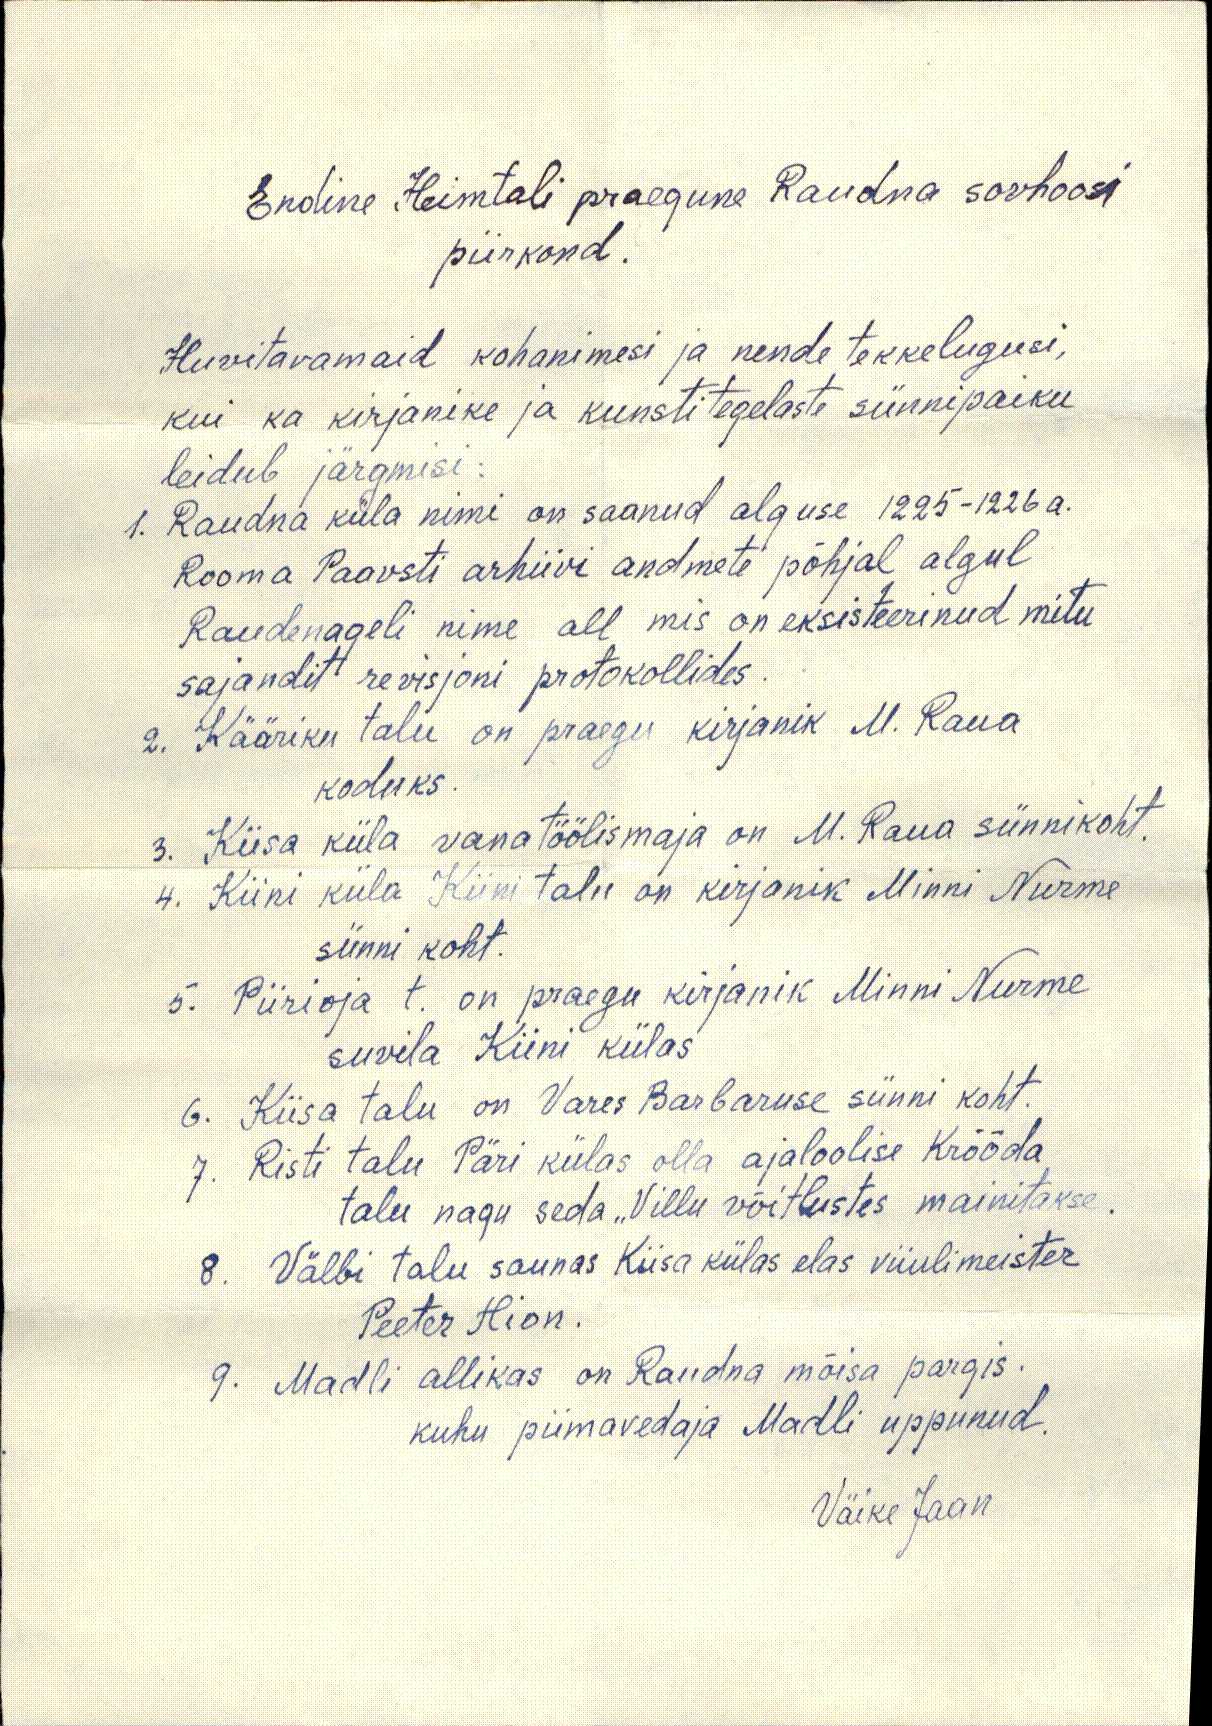 Endine Heimtali praegune Raudna sovhoosi
piirkond.
Huvitavamaid kohanimesi ja nende tekkelugusi,
kui ka kirjanike ja kunstitegelaste sünnipaiku
leidub järgmisi:
1. Raudna küla nimi on saanud alguse 1225-1226 a.
Rooma Paavsti arhiivi andmete põhjal algul
Raudenageli nime all mis on eksisteerinud mitu
sajandit revisjoni protokollides.
2. Kääriku talu on praegu kirjanik M. Raua
koduks.
3. Kiisa küla vana töölismaja on M. Raua sünnikoht.
4. Kiini küla Kiini talu on kirjanik Minni Nurme
sünni koht.
5. Piirioja t. on praegu kirjanik Minni Nurme
suvila Kiini külas
6. Kiisa talu on Vares Barbaruse sünni koht.
7. Risti talu Päri külas olla ajaloolise Krõõda
talu nagu seda „Villu võitlustes mainitakse.
8. Välbi talu saunas Kiisa külas elas viiulimeister
Peeter Hion.
9. Madli allikas on Raudna mõisa pargis.
kuhu piimavedaja Madli uppunud.
Väike Jaan